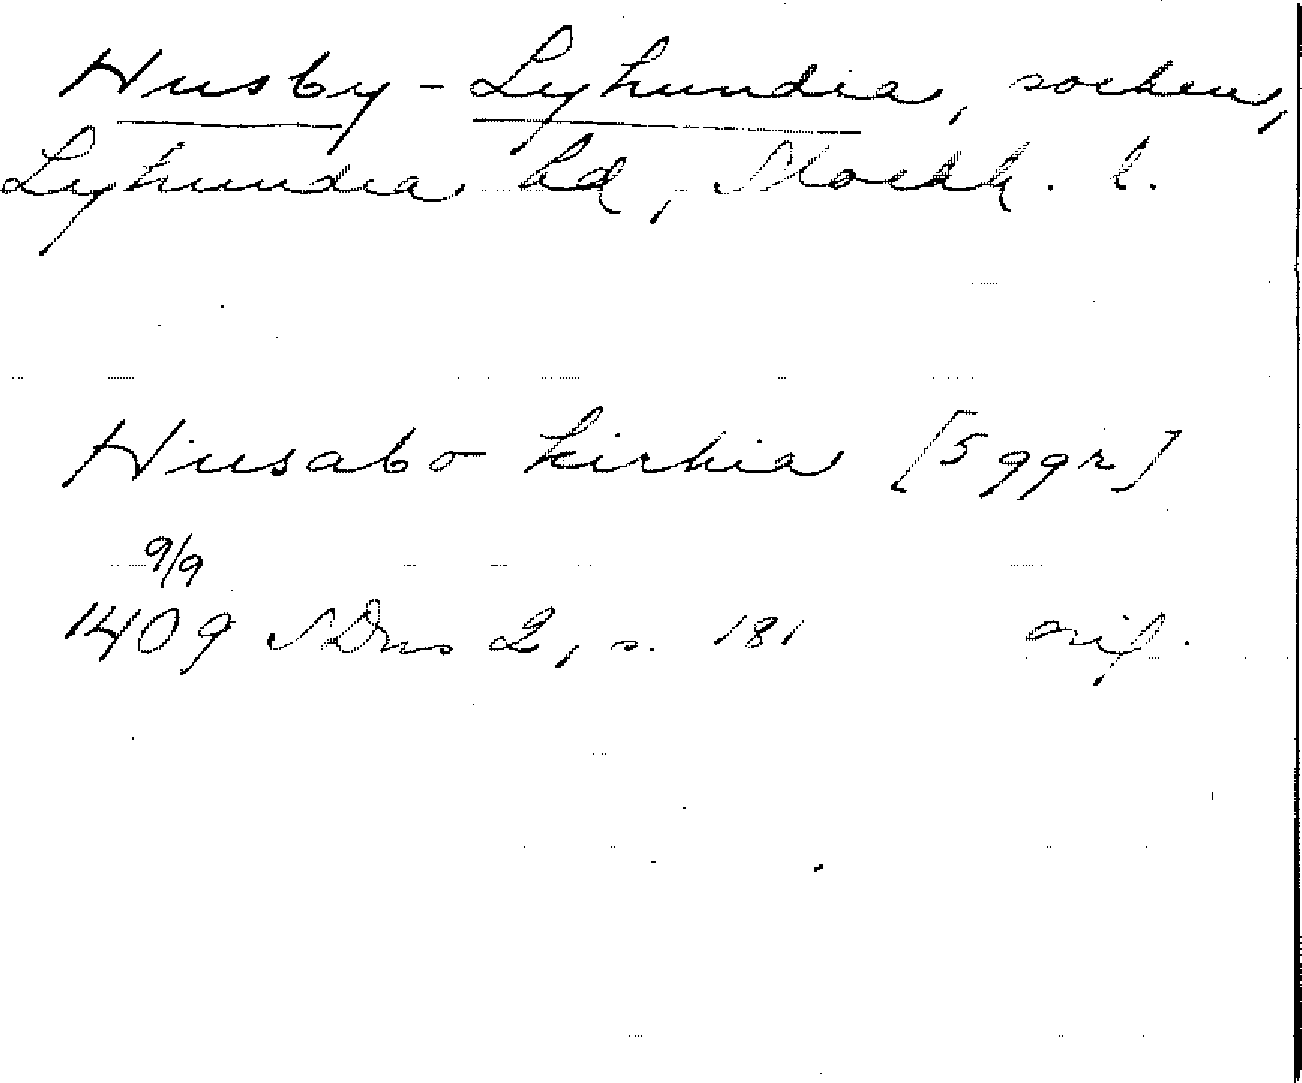 Husby - Lyhundra, socken,
Lyhundra hd, Stockh. l.
Husabo kirkia [5 ggr]
9/9
1409 SDns 2, s. 181 orig.